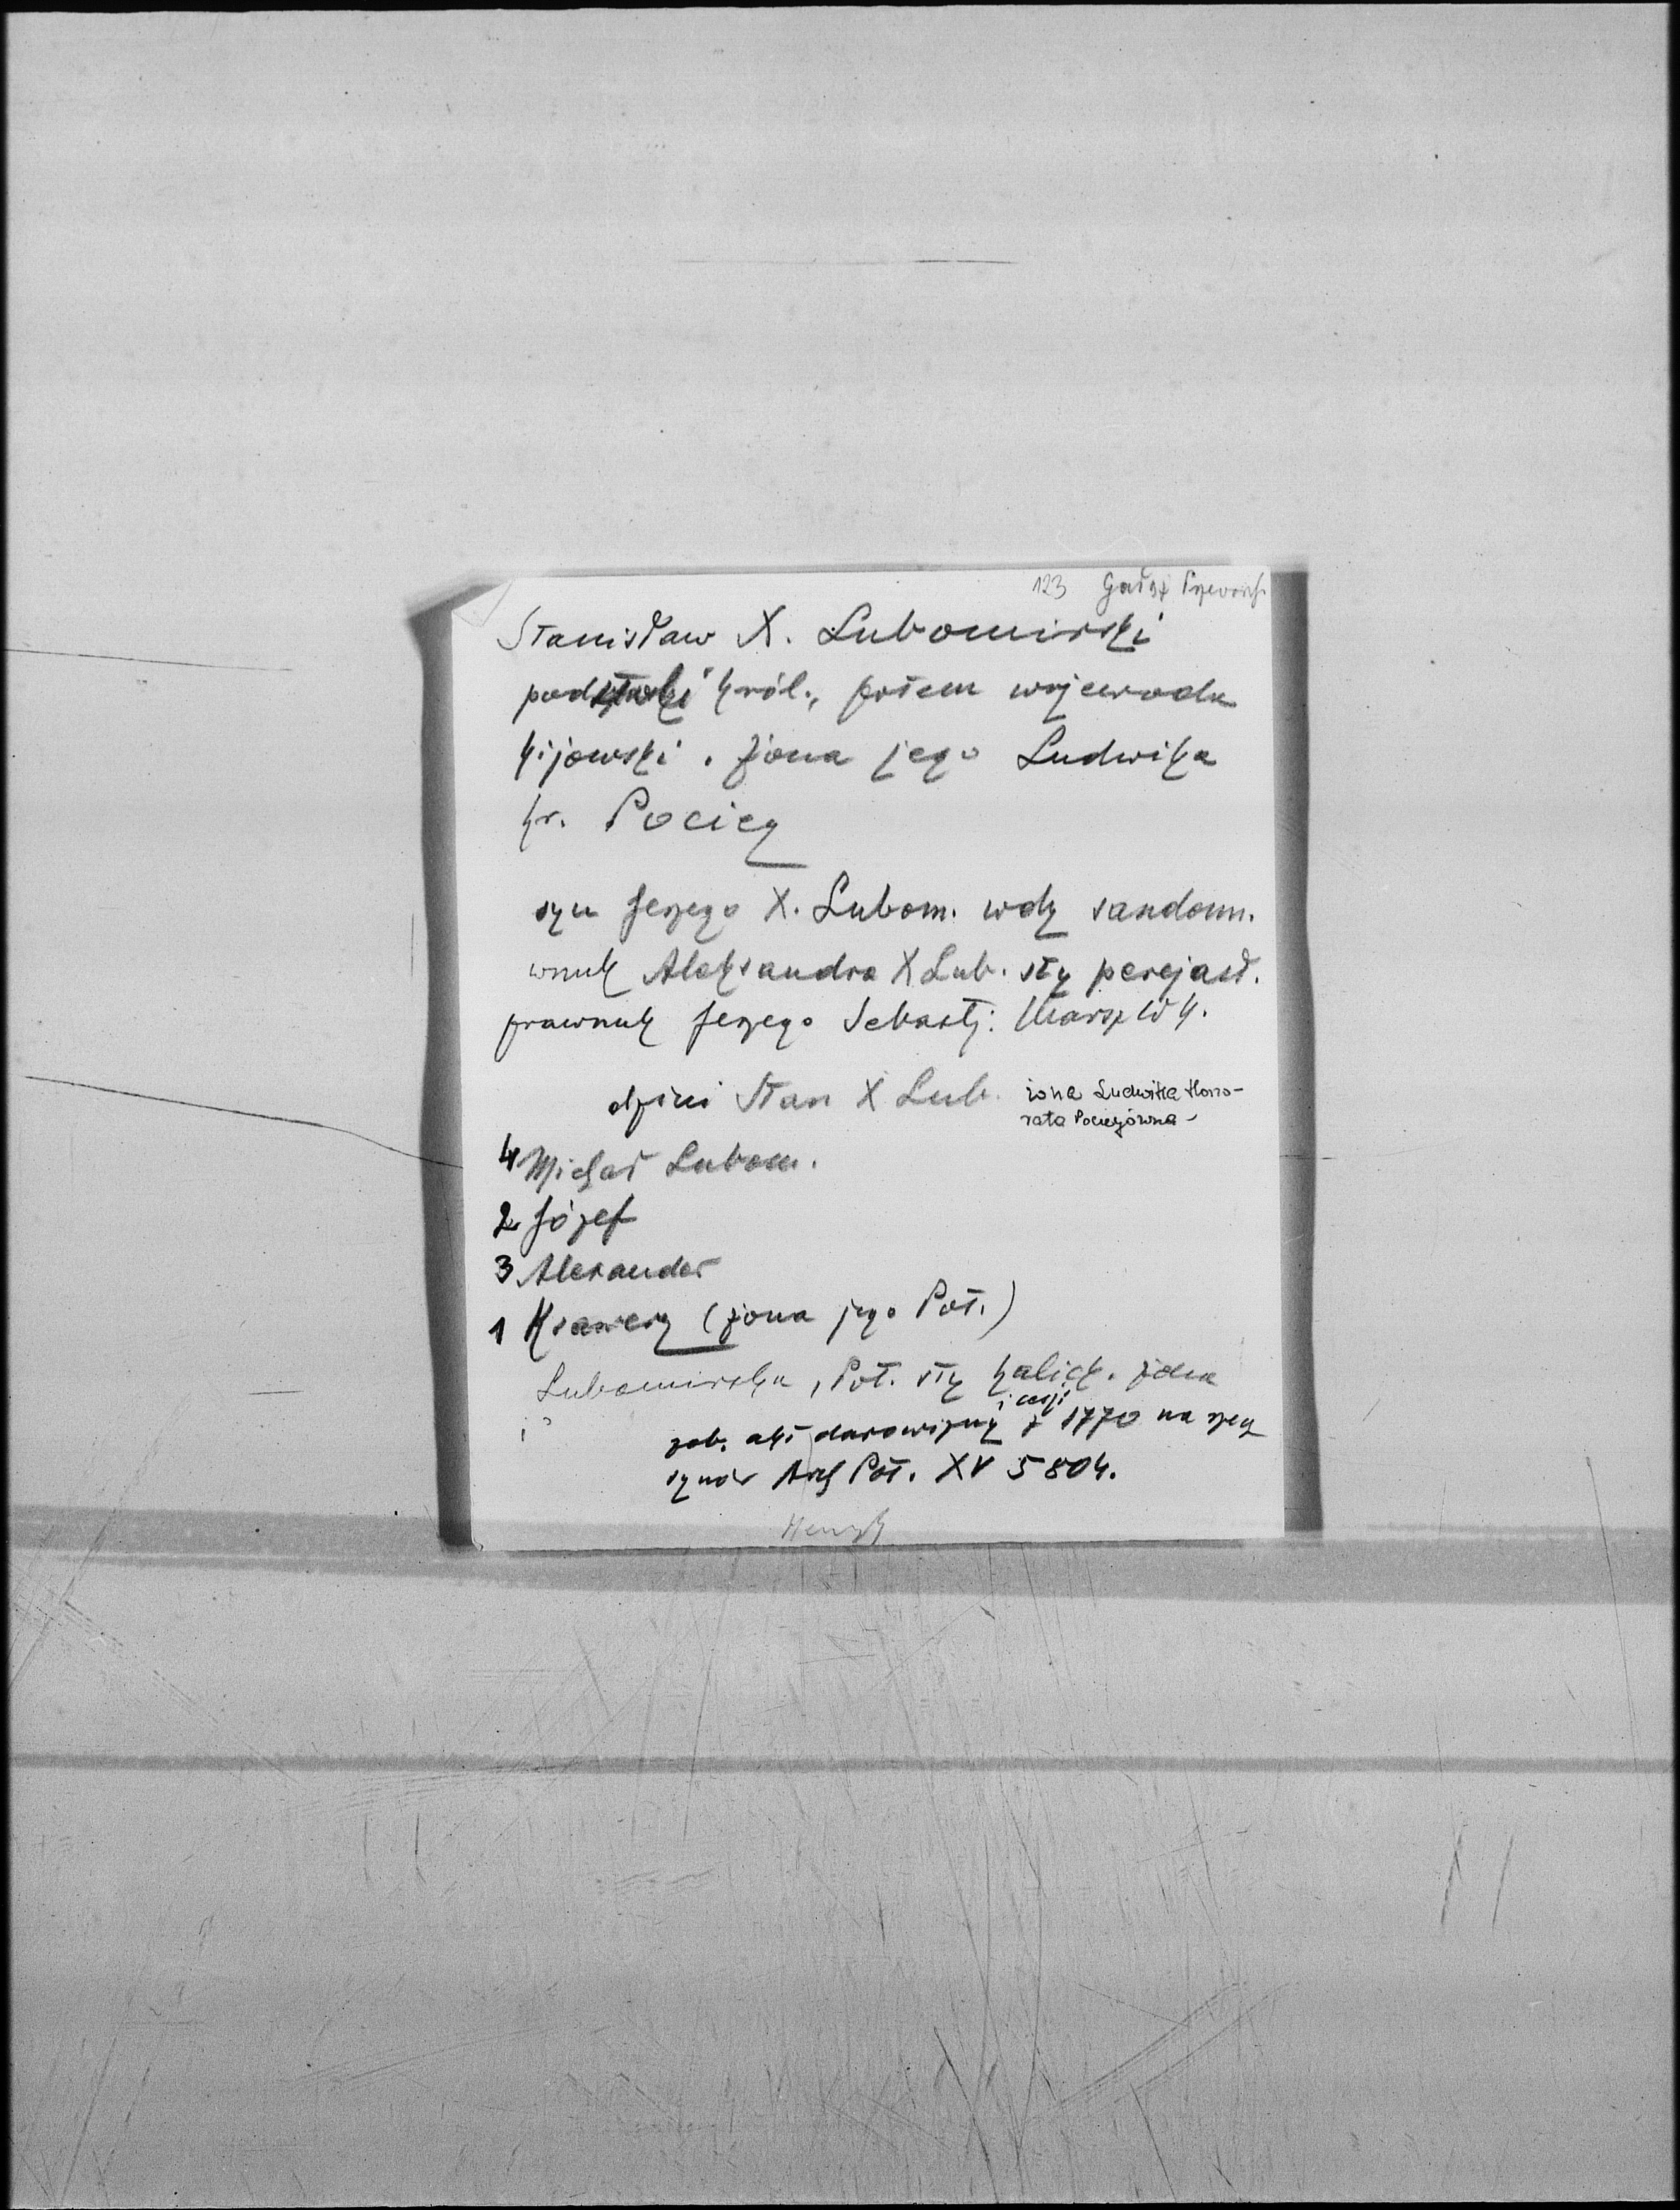 123 Gałąź Przeworsk.
Stanisław X. Lubomirski
podstoli król., potem wojewoda
kijowski. Żona jego Ludwika
hr. Pociej
syn Jerzego X. Lubom. wdy sandom.
wnuk Aleksandra X Lub. sty perejasł.
prawnuk Jerzego Sebastj. Marsz W K.
dzieci Stan X Lub. żona Ludwika Hono-
rata Pociejówna -
4 Michał Lubom.
2 Józef
3 Alexander
1 Ksawery (żona jego Pot.)
Lubomirska, Pot. sty halick. żona
i cesji
zob. akt darowizny z 1770 na rzecz
synów Arch Pot. XV 5804.
Henryk